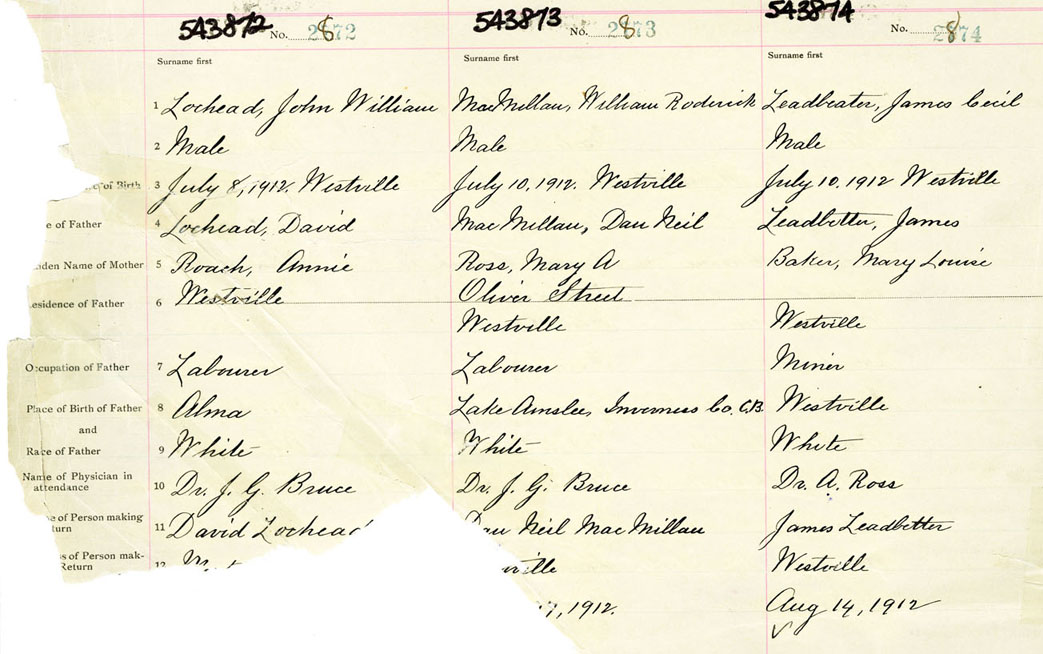 543872 543873 543874
No. 2872 No. 2873 No. 2874
Surname first Surname first Surname first
1 Lochead, John William MacMillan, William Roderick Leadbeater, James Cecil
2 Male Male Male
of Birth 3 July 8, 1912. Westville July 10, 1912. Westville July 10, 1912 Westville
e of Father 4 Lochead, David MacMillan, Dan Neil Leadbetter, James
iden Name of Mother 5 Roach, Annie Ross, Mary A Baker, Mary Louise
esidence of Father 6 Westville Oliver Street
Westville Westville
Occupation of Father 7 Labourer Labourer Miner
Place of Birth of Father 8 Alma Lake Ainslee, Inverness Co. C.B. Westville
and
Race of Father 9 White White White
Name of Physician in
attendance 10 Dr. J. G. Bruce Dr. J. G. Bruce Dr. A. Ross
e of Person making
turn 11 David Lochead Dan Neil MacMillan James Leadbetter
ss of Person mak-
Return 12 ville Westville
, 1912. Aug 14, 1912